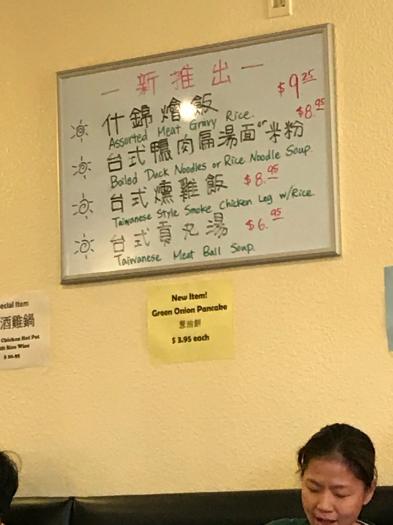 — 新推出 —
什錦燴飯 $9.25
Assorted Meat Gravy Rice. $8.95
台式鴨肉扁湯面 or 米粉
Boiled Duck Noodles or Rice Noodle Soup.
台式燻雞飯 $8.95
Taiwanese Style Smoke Chicken Leg w/Rice
台式貢丸湯 $6.95
Taiwanese Meat Ball Soup.
ecial Item
酒雞鍋
Chicken Hot Pot
Rice Wine
New Item!
Green Onion Pancake
蔥油餅
$ 3.95 each